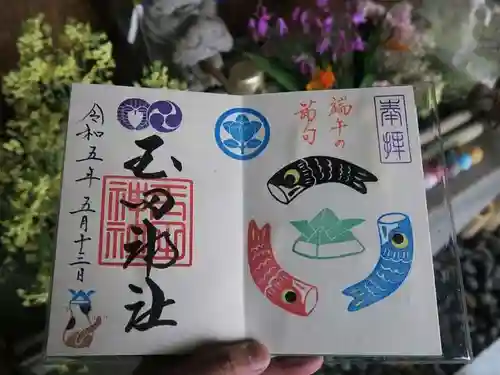 奉拝
端午の
節句
玉田神社
玉田神社
令和五年五月十三日